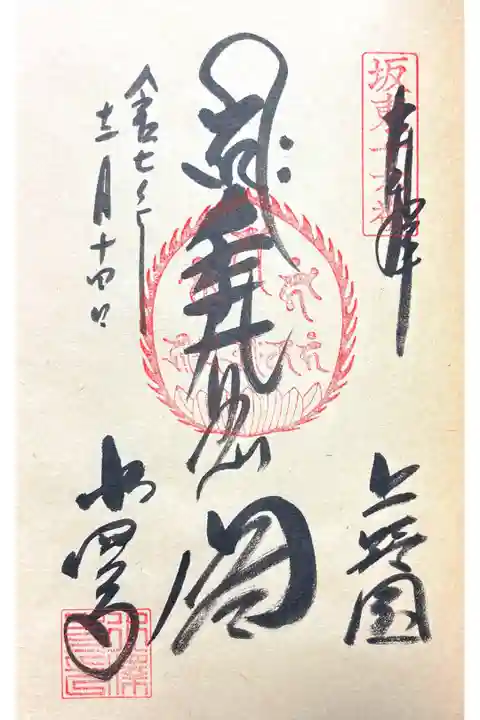 坂東十六番
奉拝
上野国
千手大悲閣
令和七年
十二月十四日
水澤寺